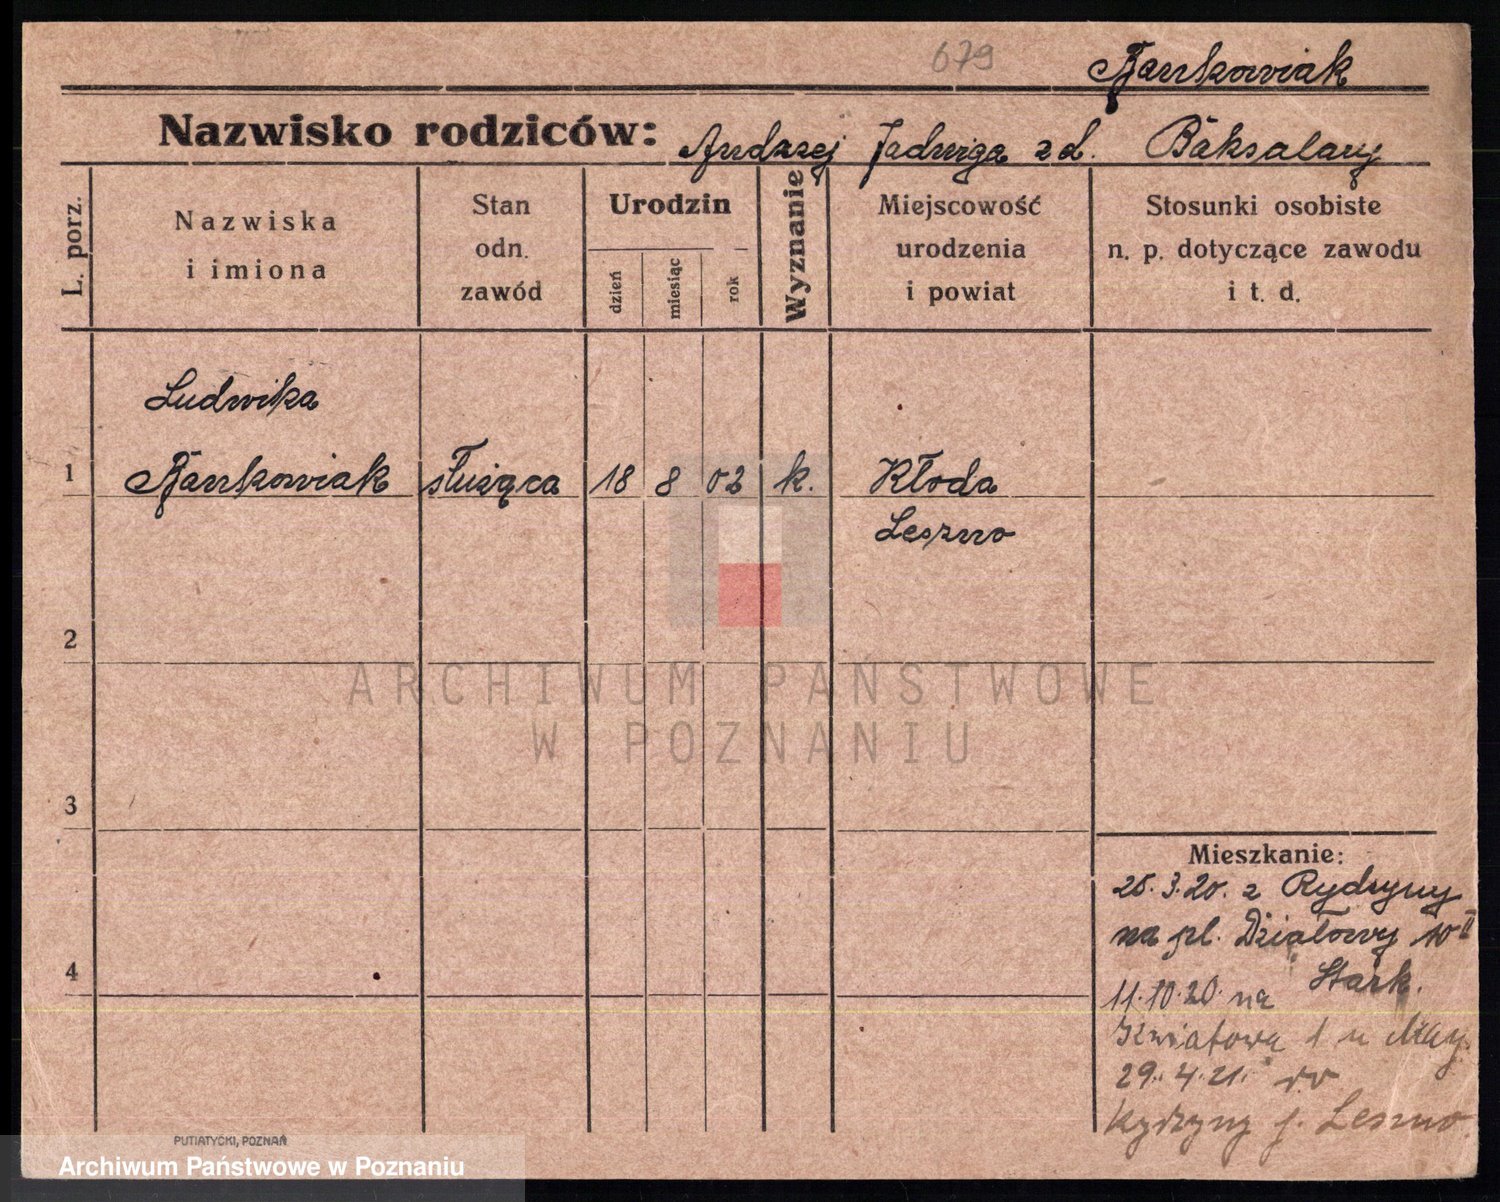 679
Bankowiak
Nazwisko rodziców: Andrzej Jadwiga z d. Baksalary
L. porz.
Nazwiska
i imiona
Stan
odn.
zawód
Urodzin
dzień
miesiąc
rok
Wyznanie
Miejscowość
urodzenia
i powiat
Stosunki osobiste
n. p. dotyczące zawodu
i t. d.
Ludwika
1 Bankowiak służąca 18 8 02 k. Kłoda
Leszno
2
ARCHIWUM PAŃSTWOWE
W POZNANIU
3
4
Mieszkanie:
25.3.20. z Rydzyny
na pl. Działowy 10 II
Stark.
11.10.20 na
Kwiatowa 1 u
29.4.21. do
Rydzyny p. Leszno.
PUTIATYCKI, POZNAŃ
Archiwum Państwowe w Poznaniu